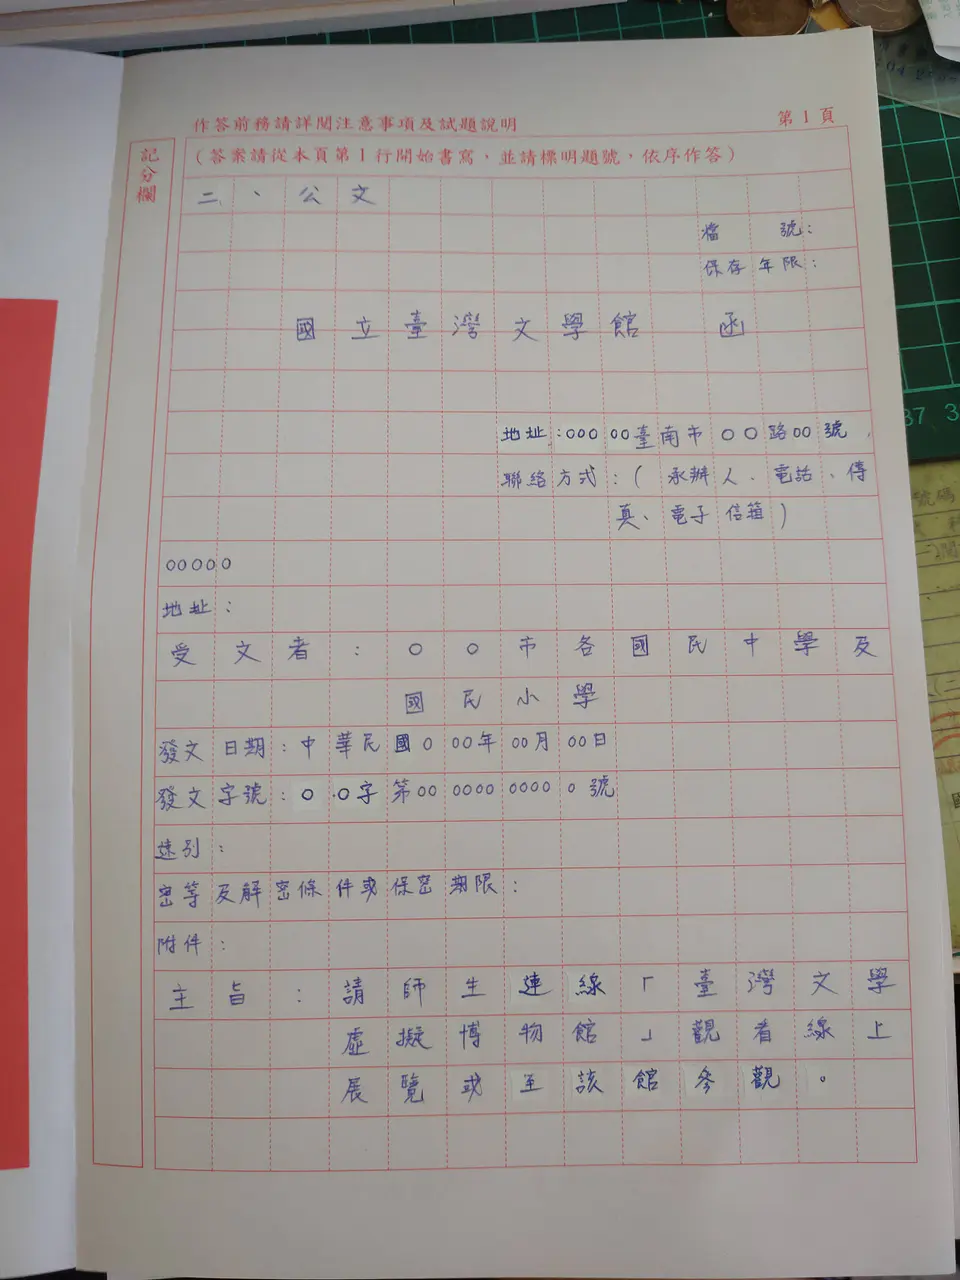 作答前務請詳閱注意事項及試題說明
第 1 頁
記分欄
(答案請從本頁第1行開始書寫,並請標明題號,依序作答)
二、公文
檔 號:
保存年限:
國立臺灣文學館 函
地址:000 00臺南市○○路00號
聯絡方式:( 承辦人、電話、傳
真、電子信箱)
00000
地址:
受文者:○○市各國民中學及
國民小學
發文日期:中華民國0 00年 00月 00日
發文字號:○○字第00 0000 0000 0號
速別:
密等及解密條件或保密期限:
附件:
主旨:請師生連線「臺灣文學
虛擬博物館」觀看線上
展覽或至該館參觀。
04
37 3
號碼